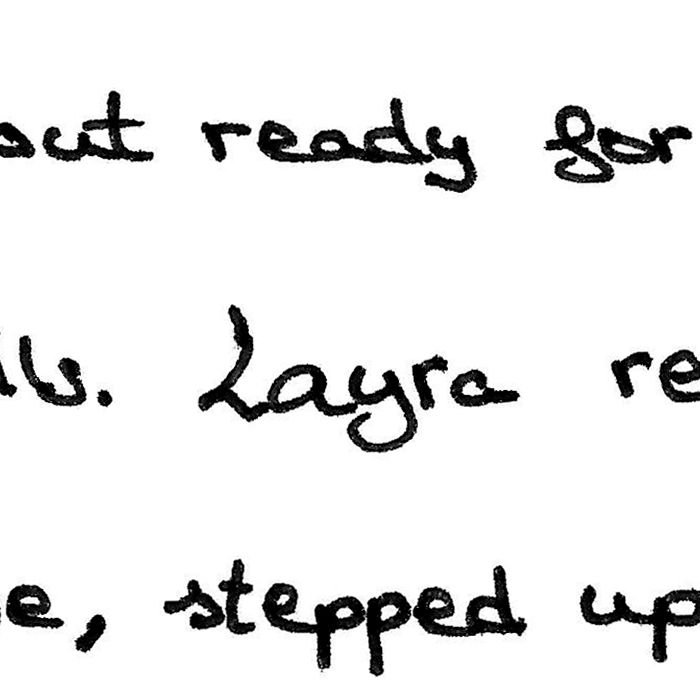 out ready for
Layra re
e, stepped up